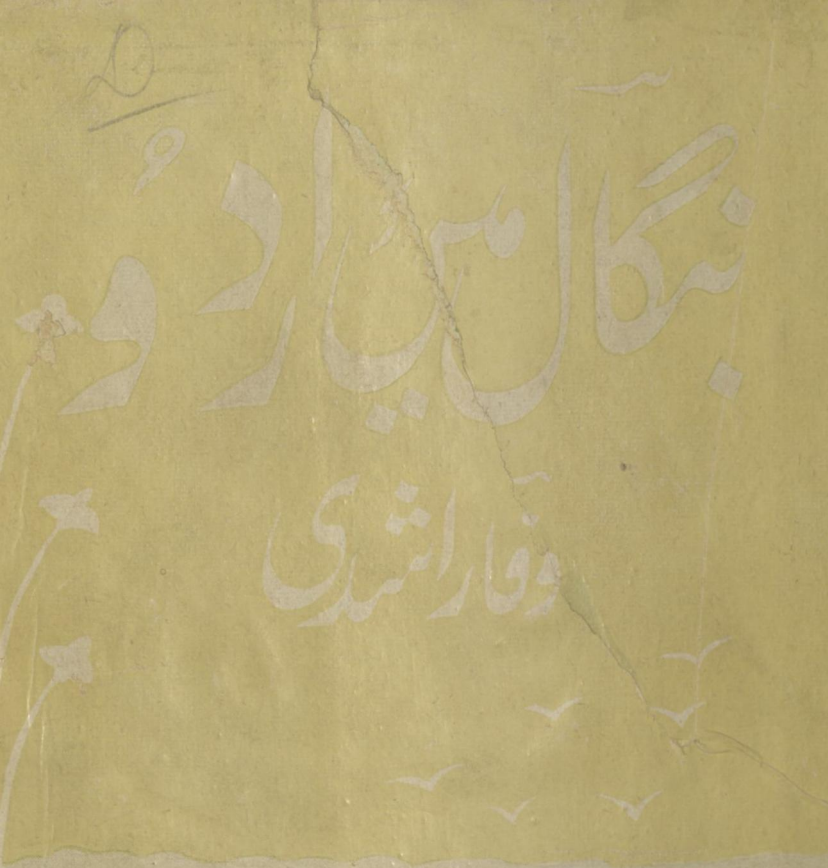 بنگال میں اردو
وفا راشدی